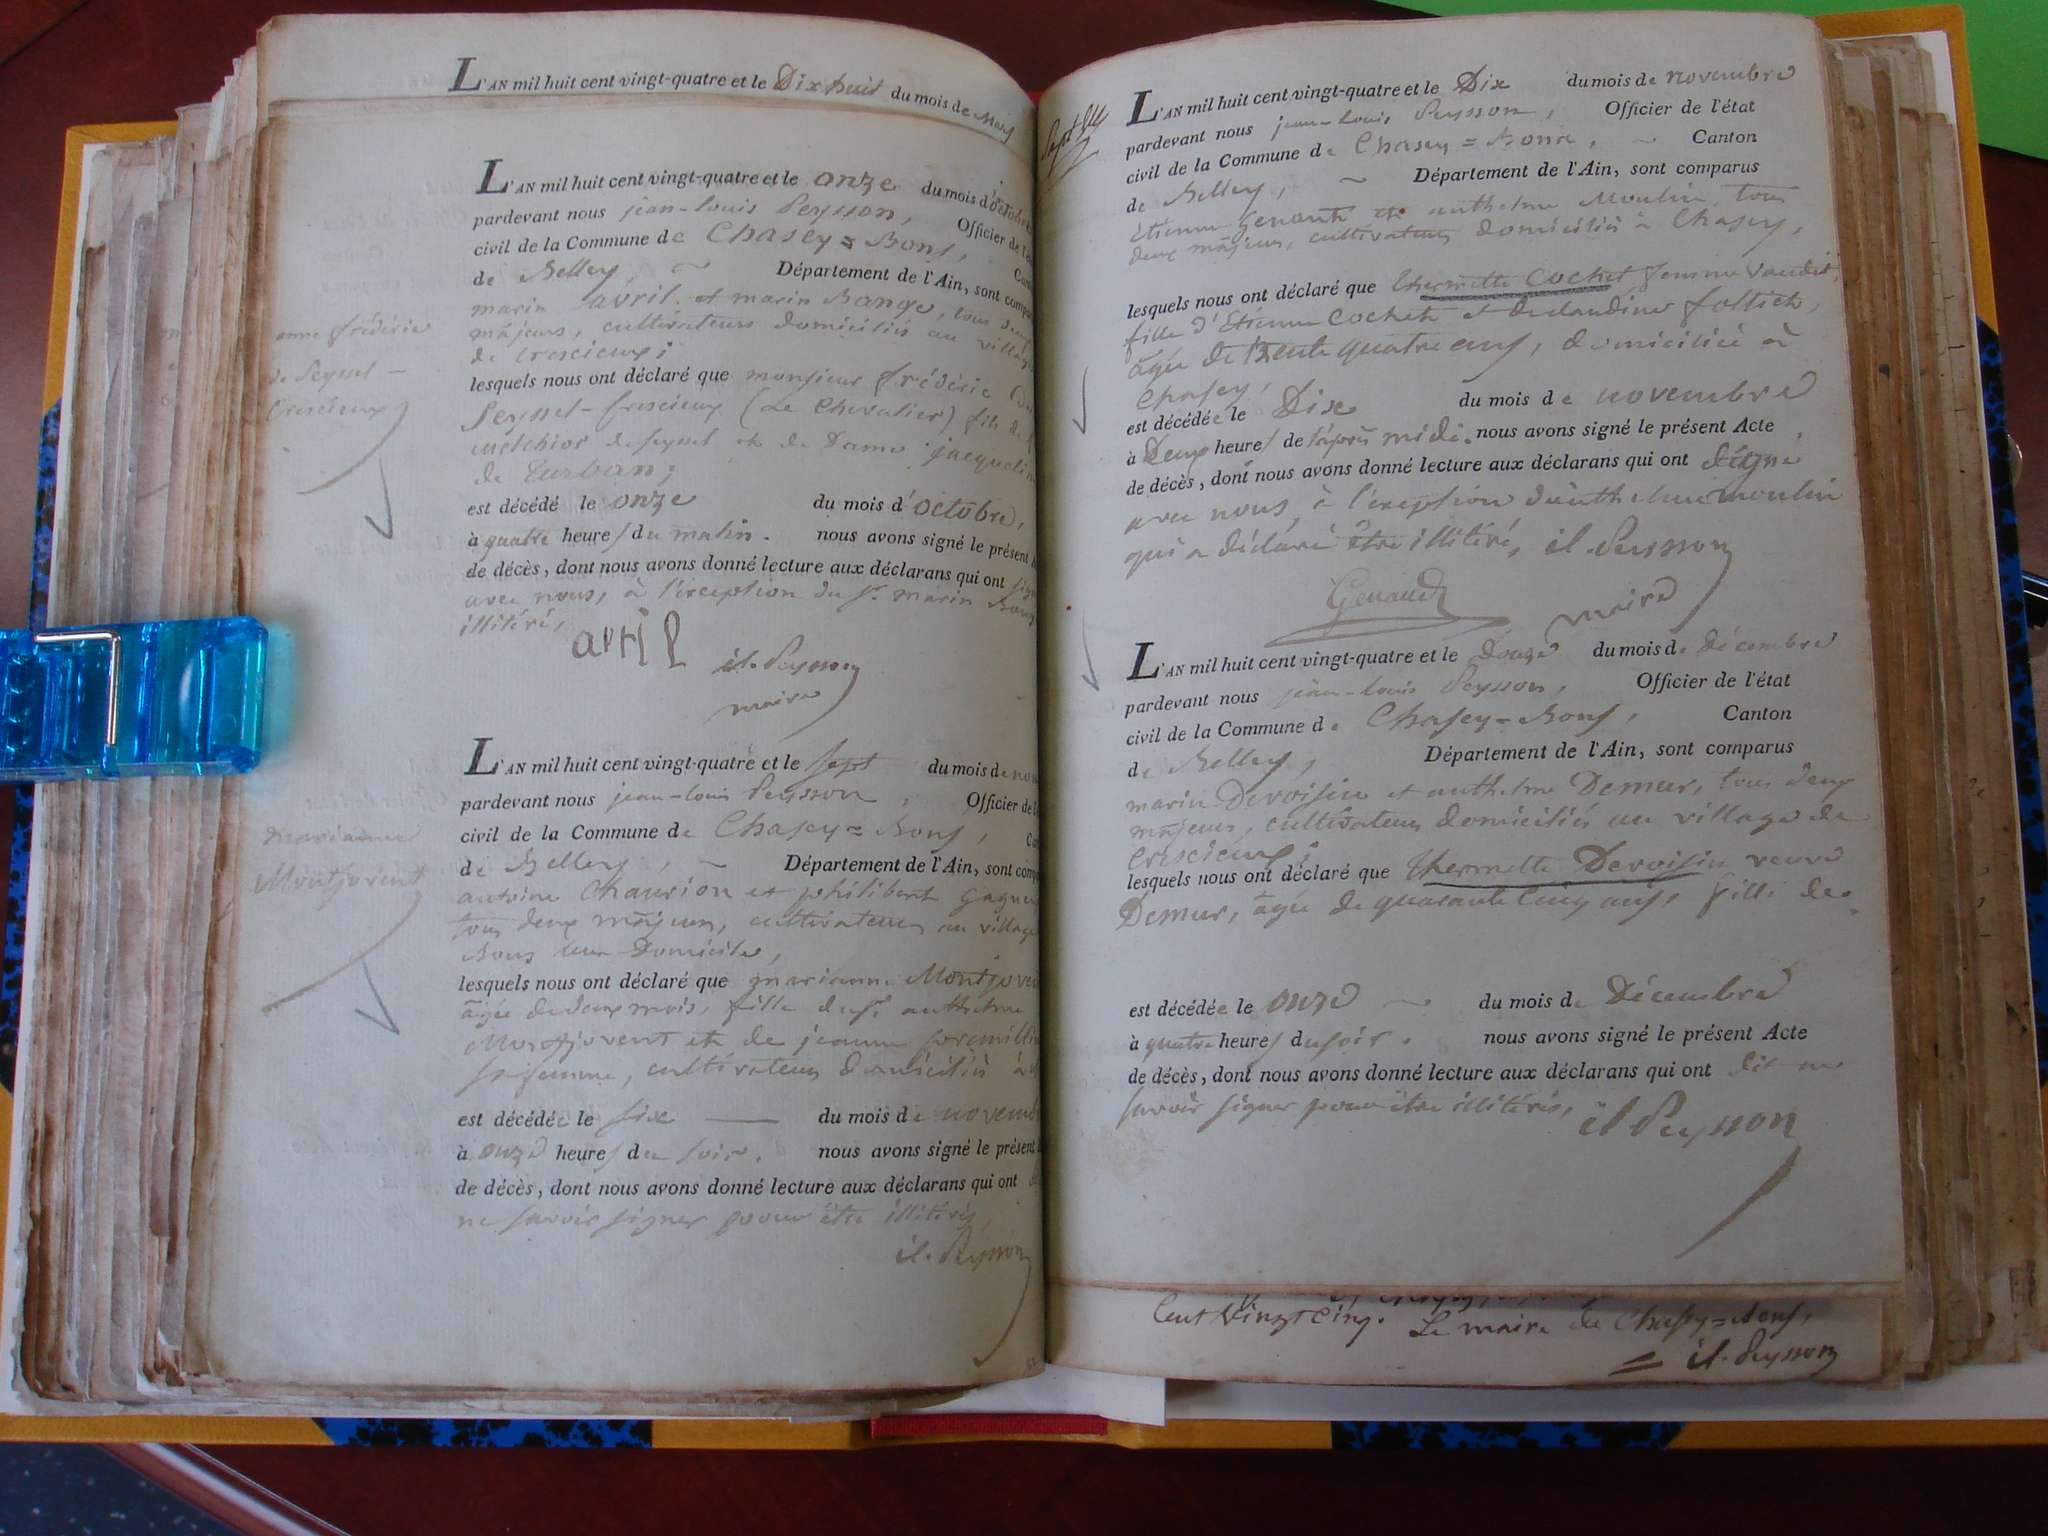 L'AN mil huit cent vingt-quatre et le Dix huit du mois de Mars
L'AN mil huit cent vingt-quatre et le onze du mois d'octobre
pardevant nous jean-Louis Peysson, Officier de l'é
civil de la Commune de Chasey=Bons,
de Belley, ~ Département de l'Ain, sont compa
marin avril et marin Bange, tous deux
majeurs, cultivateurs domiciliés au village
de Crescieux;
anne frédéric
de Seyssel-
Crescieux
lesquels nous ont déclaré que monsieur frédéric
Seyssel-Crescieux (Le Chevalier) fils de
melchior de Seyssel et de Dame jacqueline
de
est décédé le onze du mois d'octobre,
à quatre heures du matin. nous avons signé le présent
de décès, dont nous avons donné lecture aux déclarans qui ont signé
avec nous, à l'exception du Sr. marin Bange
illitéré,
avril
il. Peysson
maire
L'AN mil huit cent vingt-quatre et le sept du mois de nov
pardevant nous jean-louis Peysson, Officier de l
civil de la Commune de Chasey=Bons,
de Belley, ~ Département de l'Ain, sont comp
antoine et philibert
tous deux majeurs, cultivateurs au village
Bons leur Domicile,
marianne
Montjovent
lesquels nous ont déclaré que marianne Montjovent
âgée de deux mois, fille du Sr. anthelme
Montjovent et de jeanne
sa femme, cultivateurs domiciliés à
est décédée le six du mois de novemb
à onze heures du soir. nous avons signé le présent
de décès, dont nous avons donné lecture aux déclarans qui ont
ne savoir signer pour être illitérés,
il. Peysson
L'AN mil huit cent vingt-quatre et le Dix du mois de novembre
pardevant nous jean-Louis Peysson, Officier de l'état
civil de la Commune de Chasey=Bons, ~ Canton
de Belley, ~ Département de l'Ain, sont comparus
Etienne Genaud et anthelme Moulin, tous
deux majeurs, cultivateurs domiciliés à Chasey,
lesquels nous ont déclaré que thermette Cochet femme
fille d'Etienne Cochet et de claudine
âgée de trente quatre ans, domiciliée à
Chasey,
est décédée le Dix du mois de novembre
à Deux heures de l'après midi. nous avons signé le présent Acte
de décès, dont nous avons donné lecture aux déclarans qui ont signé
avec nous, à l'exception d'anthelme moulin
qui a déclaré être illitéré, il. Peysson
Genaud
maire
L'AN mil huit cent vingt-quatre et le Douze du mois de décembre
pardevant nous jean-Louis Peysson, Officier de l'état
civil de la Commune de Chasey=Bons, Canton
de Belley, Département de l'Ain, sont comparus
marin Devoisin et anthelme Demur, tous deux
majeurs, cultivateurs domiciliés au village de
Crescieux;
lesquels nous ont déclaré que thermette Devoisin veuve
Demur, âgée de quarante Cinq ans, fille de
est décédée le onze ~ du mois de Décembre
à quatre heures du soir. nous avons signé le présent Acte
de décès, dont nous avons donné lecture aux déclarans qui ont dit ne
savoir signer pour être illitérés,
il Peysson
Cent Vingt Cinq. Le maire de Chasey=Bons,
il. Peysson